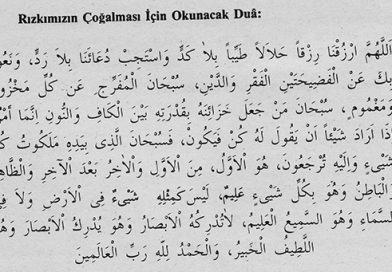 Rızkımızın Çoğalması İçin Okunacak Duâ:
اَللّٰهُمَّ ارْزُقْنَا رِزْقاً حَلَالاً طَيِّباً بِلَا كَدٍّ وَاسْتَجِبْ دُعَائَنَا بِلَا رَدٍّ، وَنَعُو
بِكَ عَنِ الْفَضِيحَتَيْنِ الْفَقْرِ وَالدَّيْنِ، سُبْحَانَ الْمُفَرِّجِ عَنْ كُلِّ مَحْزُو
وَمَغْمُومٍ، سُبْحَانَ مَنْ جَعَلَ خَزَائِنَهُ بِقُدْرَتِهِ بَيْنَ الْكَافِ وَالنُّونِ اِنَّمَا اَمْرُ
ذَا اَرَادَ شَيْئاً اَنْ يَقُولَ لَهُ كُنْ فَيَكُونُ، فَسُبْحَانَ الَّذِى بِيَدِهِ مَلَكُوتُ كُ
شَيْىءٍ وَاِلَيْهِ تُرْجَعُونَ، هُوَ الْاَوَّلُ، مِنَ الْاَوَّلِ وَالْاٰخِرُ بَعْدَ الْاٰخِرِ وَالظَّاهِ
الْبَاطِنُ وَهُوَ بِكُلِّ شَيْىءٍ عَلِيمٌ، لَيْسَ كَمِثْلِهِ شَيْىءٌ فِى الْاَرْضِ وَلَا فِ
السَّمَاءِ وَهُوَ السَّمِيعُ الْعَلِيمُ، لَاتُدْرِكُهُ الْاَبْصَارُ وَهُوَ يُدْرِكُ الْاَبْصَارَ وَهُ
اللَّطِيفُ الْخَبِيرُ، وَالْحَمْدُ لِلّٰهِ رَبِّ الْعَالَمِينَ